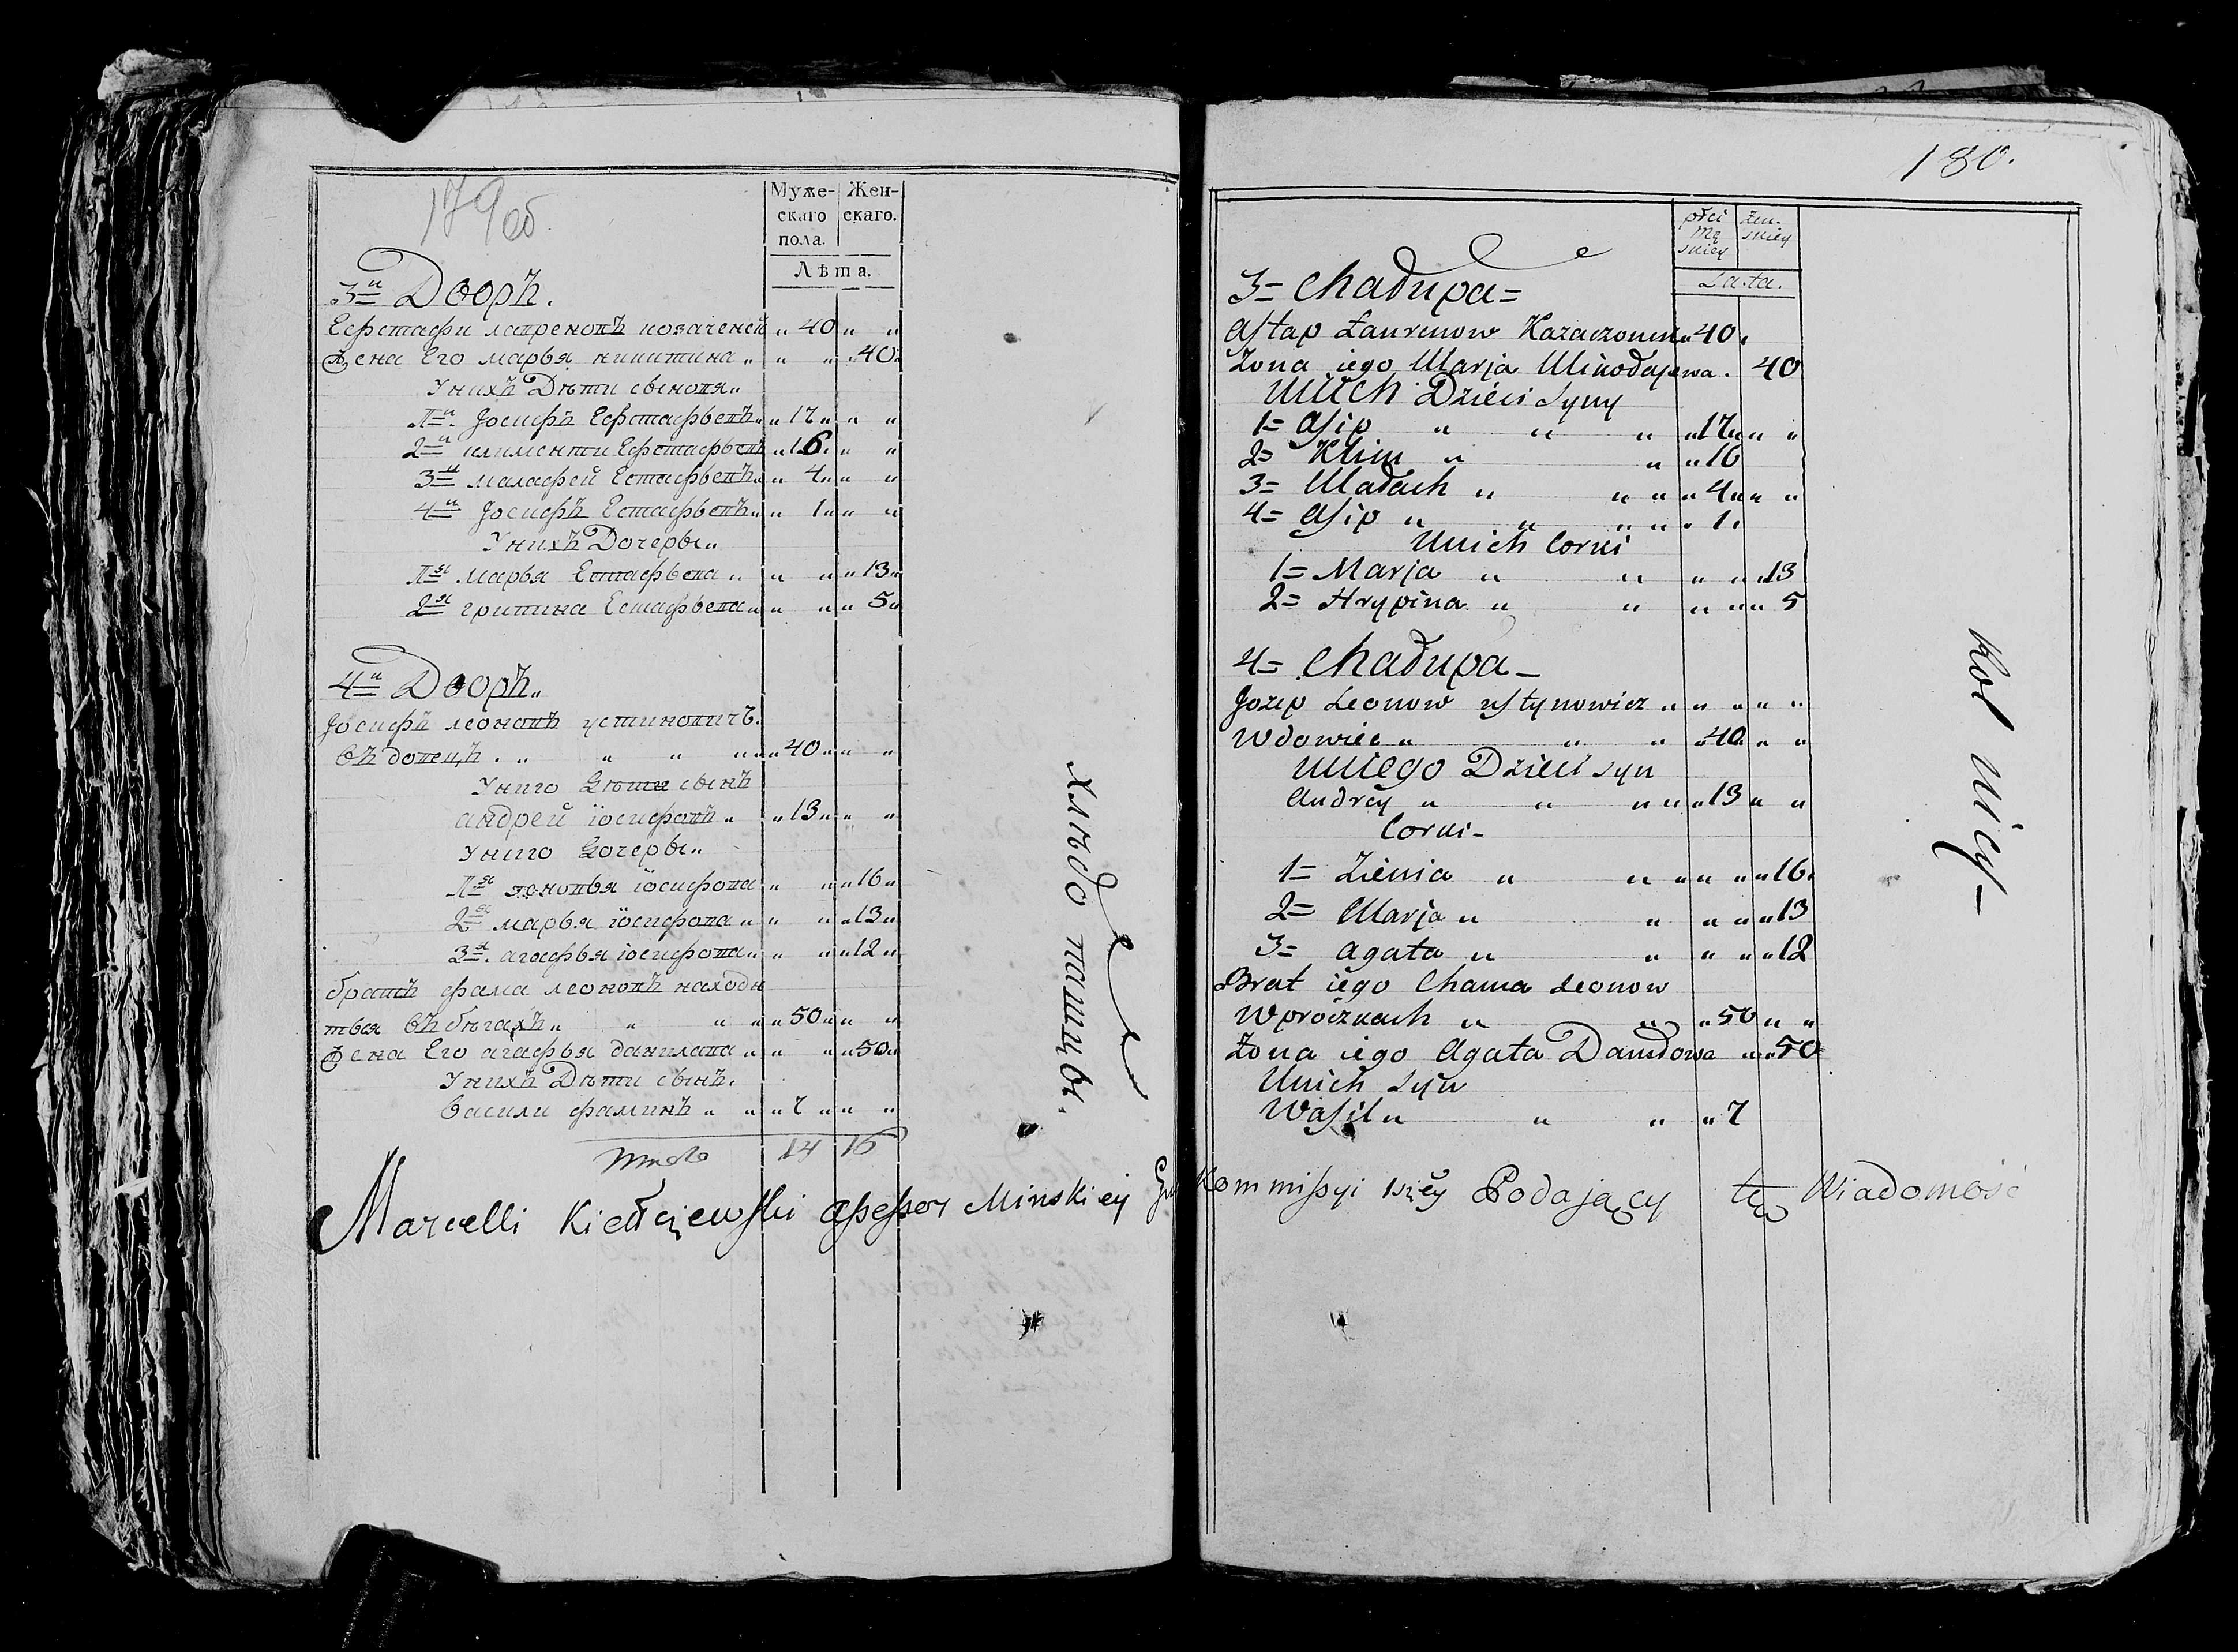 179об
Муже-
скаго
пола.
Жен-
скаго.
Лѣта.
3й Дворъ.
Ефстафи лавреновъ козаченей „ 40 „ „
Жена Его марья никитина „ „ „ 40 „
Унихъ Дѣти сыновя „
1й Іосифъ Ефстафьевъ „ 17 „ „ „
2й клименти Ефстафьевъ „ 16 „ „ „
3й малафей Естафьевъ „ „ 4 „ „ „
4й Іосифъ Естафьевъ „ „ 1 „ „ „
Унихъ Дочеры „
1я марья Естафьева „ „ „ „ 13 „
2я грипина Естафьева „ „ „ „ 5 „
4й Дворъ „
Іосифъ леоновъ устиновичъ.
въдовецъ . „ „ „ „ „ 40 „ „ „
Униго Дѣти сынъ
андрей іосифовъ „ „ 13 „ „ „
Униго Дочеры „
1я зеновья іосифова „ „ „ 16 „
2я марья іосифова „ „ „ „ 13 „
3я. агафья іосифова „ „ „ „ 12 „
братъ фама леоновъ находи
тъся въ бѣгахъ „ „ „ „ „ 50 „ „ „
Жена Его агафья данилава „ „ „ „ 50 „
Унихъ Дѣти сынъ.
Васили фаминъ „ „ „ 7 „ „ „
Итого 14 16
хлѣбо пашцы.
180.
płci
mę
skiey
żen.
skiey
Lata.
3= Chałupa =
Astap Łaurenow Kazaczonek „ 40 „
Żona iego Marja Mikołajewa . 40
Unich Dzieci Syny
1= Asip „ „ „ „ 17 „ „ „
2= Klim „ „ „ 16
3= Małach „ „ „ „ 4 „ „ „
4= Asip „ „ „ „ „ 1 „
Unich Corki
1= Marja „ „ „ „ „ 13
2= Hrypina „ „ „ „ „ 5
4= Chałupa –
Jozep Leonow Ustynowicz „ „ „ „ „
Wdowiec „ „ „ „ 40 „ „ „
Uniego Dzieci syn
Andrey „ „ „ „ „ 13 „ „
Corki –
1= Zienia „ „ „ „ „ „ 16.
2= Marja „ „ „ „ „ 13
3= Agata „ „ „ „ „ 12
Brat iego Chama Leonow
W próżkach „ „ „ 50 „ „
Żona iego Agata Daniłowa „ „ 50
Unich syn
Wasil „ „ „ „ 7
Rolnicy –
Marcelli Kiełczewski Assessor Minskiey Kommissyi Podający tę Wiadomość